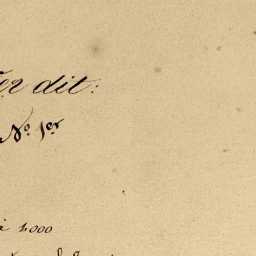 er dit:
N° 1er
à 1.000